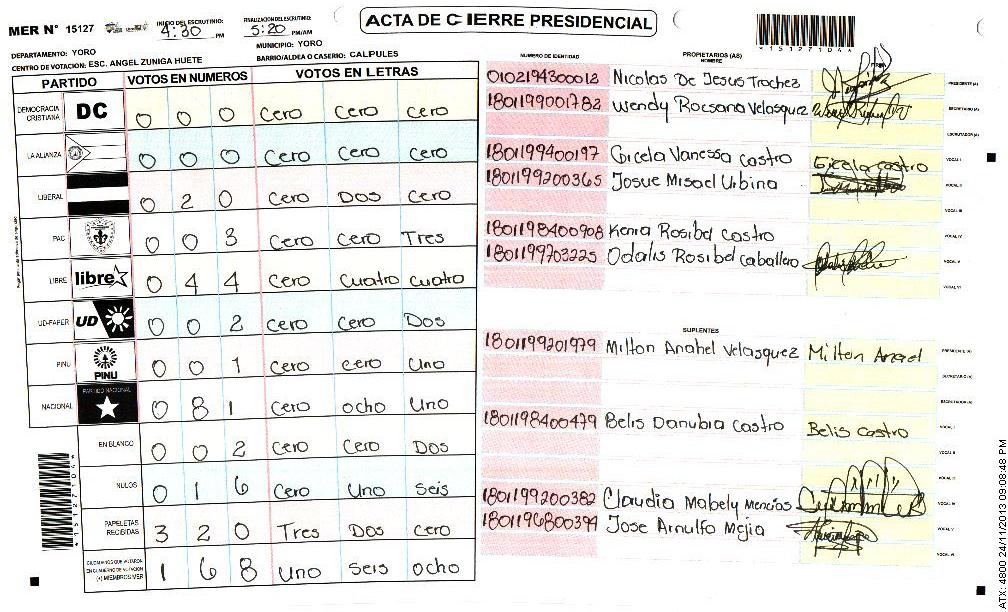 ACTA DE CIERRE PRESIDENCIAL
MER N° 15127
INICIO DEL ESCRUTINIO: 4:30 PM
FINALIZACION DEL ESCRUTINIO: 5:20 PM/AM
*15127104*
DEPARTAMENTO: YORO
MUNICIPIO: YORO
CENTRO DE VOTACION: ESC. ANGEL ZUNIGA HUETE
BARRIO/ALDEA O CASERIO: CALPULES
PARTIDO VOTOS EN NUMEROS VOTOS EN LETRAS
DEMOCRACIA CRISTIANA DC 0 0 0 Cero Cero Cero
LA ALIANZA 0 0 0 Cero Cero Cero
LIBERAL 0 2 0 Cero Dos Cero
PAC 0 0 3 Cero Cero Tres
LIBRE libre 0 4 4 Cero Cuatro cuatro
UD-FAPER UD 0 0 2 Cero Cero Dos
PINU PINU 0 0 1 Cero cero Uno
NACIONAL PARTIDO NACIONAL 0 8 1 Cero ocho Uno
EN BLANCO 0 0 2 Cero Cero Dos
NULOS 0 1 6 Cero Uno Seis
PAPELETAS RECIBIDAS 3 2 0 Tres Dos cero
CIUDADANOS QUE VOTARON EN CUADERNO DE VOTACION (+) MIEMBROS MER 1 6 8 Uno Seis ocho
*15127104*
NUMERO DE IDENTIDAD PROPIETARIOS (AS) NOMBRE FIRMA
0102194300012 Nicolas De Jesus Trochez PRESIDENTE (A)
1801199001782 Wendy Rocsana Velasquez SECRETARIO (A)
ESCRUTADOR (A)
1801199400197 Gicela Vanessa Castro Gicela castro VOCAL I
1801199200365 Josue Misael Urbina VOCAL II
VOCAL III
1801198400908 Kenia Rosibel Castro VOCAL IV
1801199703225 Odalis Rosibel caballero VOCAL V
VOCAL VI
SUPLENTES
1801199201979 Milton Anahel Velasquez Milton Anael PRESIDENTE (A)
SECRETARIO (A)
ESCRUTADOR (A)
1801198400479 Belis Danubia Castro Belis Castro VOCAL I
VOCAL II
VOCAL III
1801199200382 Claudia Mabely Mencias VOCAL IV
1801196800394 Jose Arnulfo Mejia VOCAL V
VOCAL VI
ATX: 4800 24/11/2013 09:08:48 PM